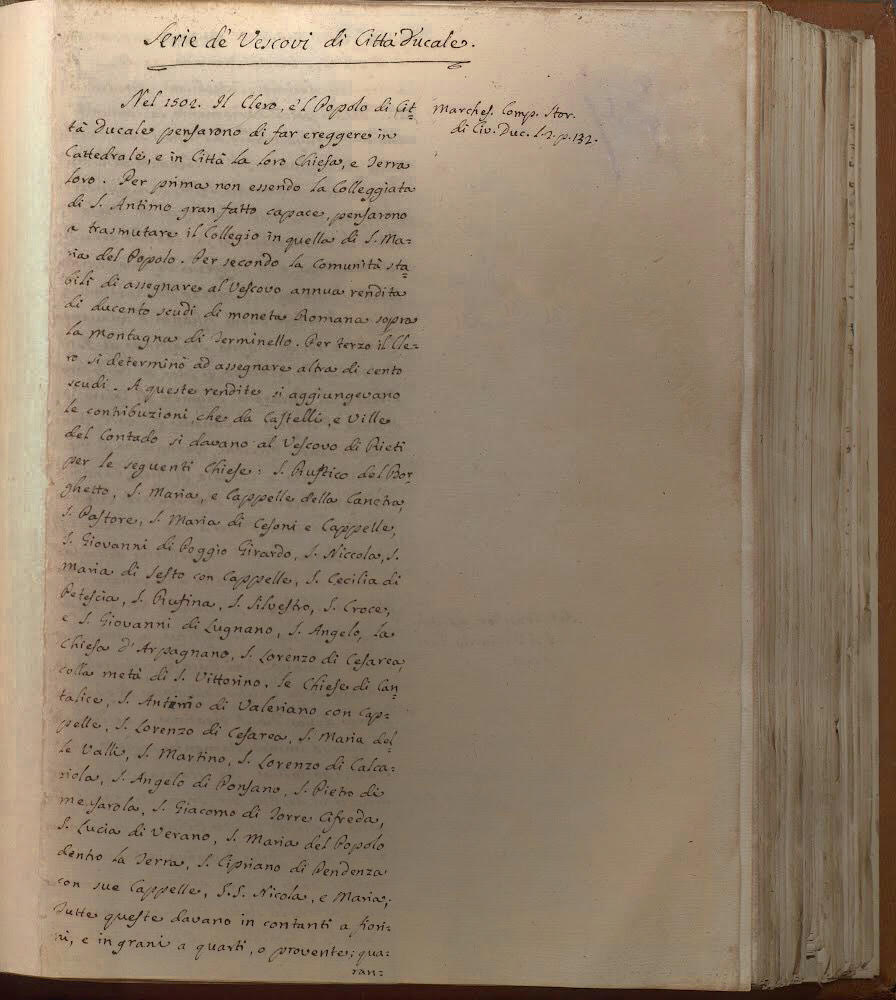 Serie dè Vescovi di Città Ducale.
Nel 1502. Il Clero, e'l Popolo di Cit=
tà Ducale pensarono di far ereggere in
Cattedrale, e in Città la loro Chiesa, e Terra
loro. Per prima non essendo la Colleggiata
di S. Antimo gran fatto capace, pensarono
a trasmutare il Collegio in quella di S. Ma=
ria del Popolo. Per secondo la Comunità sta=
bilì di assegnare al Vescovo annua rendita
di ducento scudi di moneta Romana sopra
la Montagna di Terminello. Per terzo il Cle=
ro si determinò ad assegnare altra di cento
scudi. A queste rendite si aggiungevano
le contribuzioni, che da Castelli, e Ville
del Contado si davano al Vescovo di Rieti
per le seguenti Chiese: S. Rustico del Bor=
ghetto, S. Maria, e Cappelle della Canetra,
S. Pastore, S. Maria di Cesoni e Cappelle,
S. Giovanni di Poggio Girardo, S. Niccola, S.
Maria di Sesto con Cappelle, S. Cecilia di
Petescia, S. Rufina, S. Silvestro, S. Croce,
e S. Giovanni di Lugnano, S. Angelo, la
Chiesa d'Arpagnano, S. Lorenzo di Cesarea,
colla metà di S. Vittorino, le Chiese di Can=
talice, S. Antimo di Valeriano con Cap=
pelle, S. Lorenzo di Cesarea, S. Maria del=
le Valli, S. Martino, S. Lorenzo di Calca=
riola, S. Angelo di Ponsano, S. Pietro di
mesarola, S. Giacomo di Torre Cifreda,
S. Lucia di Verano, S. Maria del Popolo
dentro la Terra, S. Cipriano di Pendenza
con sue Cappelle, S.S. Nicola, e Maria;
Tutte queste davano in contanti a fiori=
ni, e in grani a quarti, o provente; qua=
ran=
Marches. Comp. Stor.
di Civ. Duc. l. 2. p. 132.